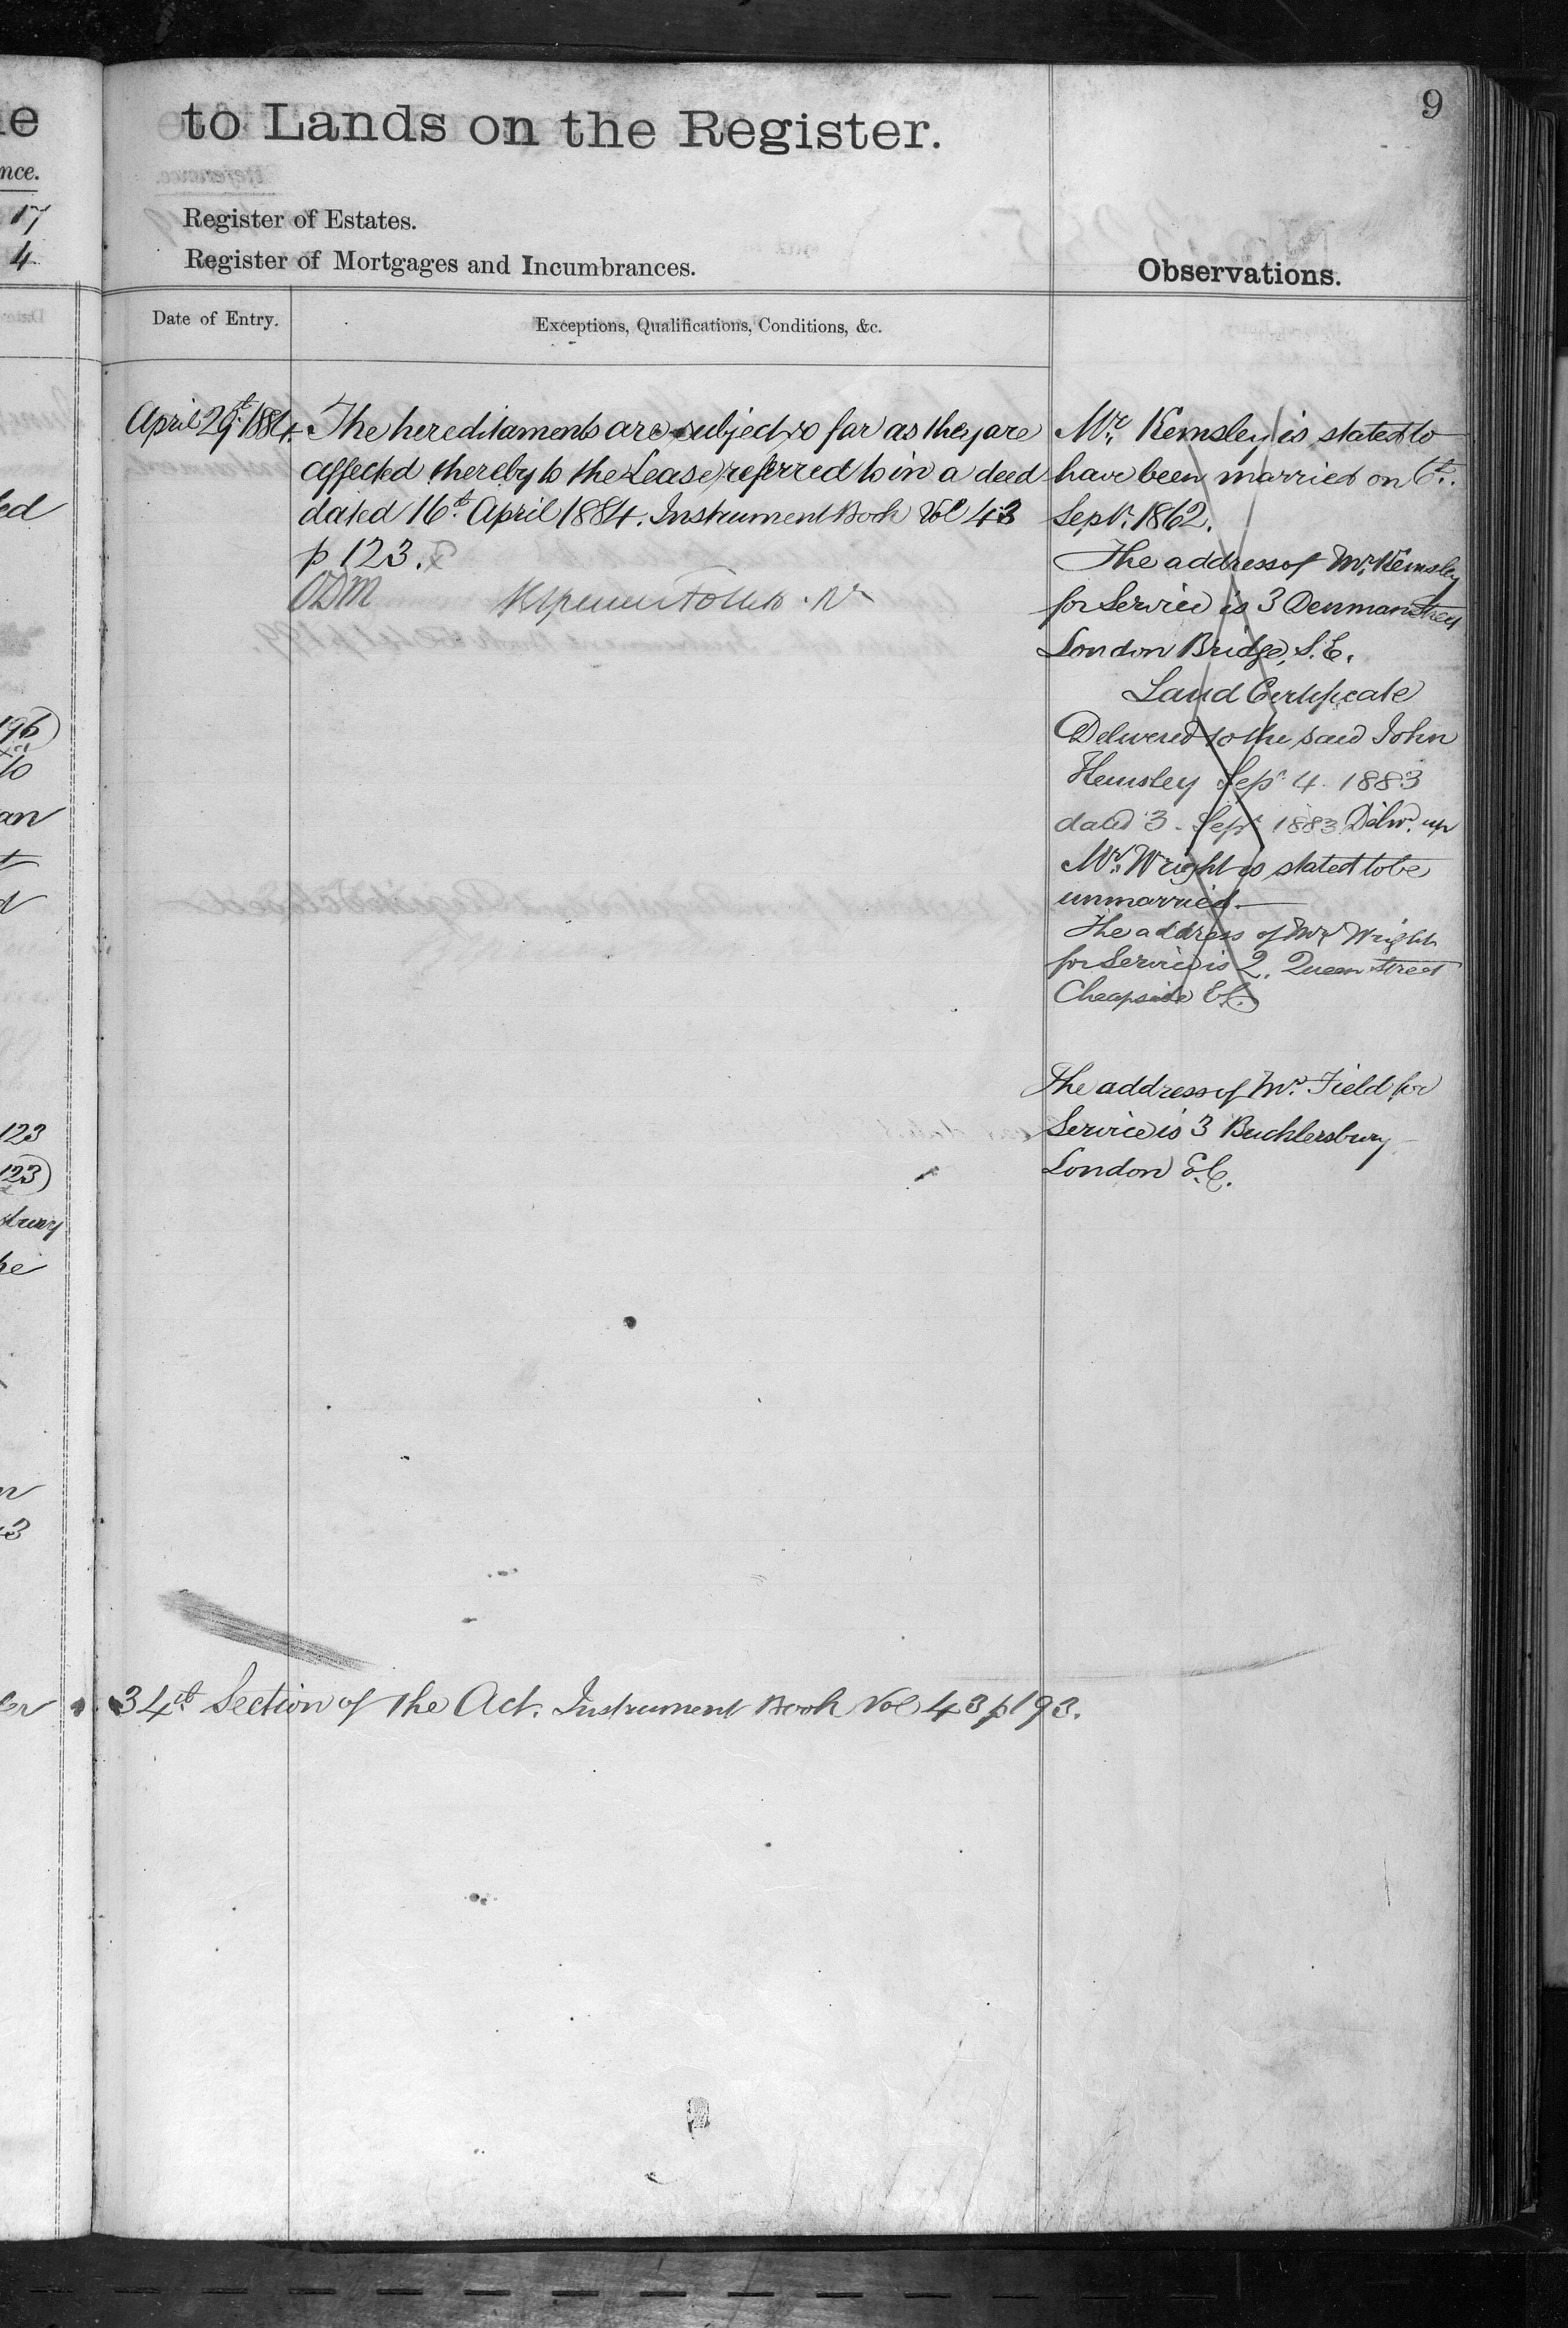 9
to Lands on the Register.
Register of Estates.
Register of Mortgages and Incumbrances.
Observations.
Date of Entry.
Exceptions, Qualifications, Conditions, &c.
April 29th 1884.
The hereditaments are subject so far as they are
affected thereby to the Lease referred to in a deed
dated 16th April 1884. Instrument Book Vol 43
p 123.
ODM
Mr. Kemsley is stated to
have been married on 6th.
Sept. 1862.
The address of Mr. Kemsley
for Service is 3 Denman Street
London Bridge, S.E.
Land Certificate
Delivered to the said John
Kemsley Sept. 4. 1883
dated 3. Sept 1883 Delivd. up
Mr. Wright is stated to be
unmarried.
The address of Mr Wright
for Service is 2. Queen Street
Cheapside E.C.
The address of Mr. Field for
Service is 3 Bucklersbury
London E.C.
34th Section of the Act. Instrument Book Vol 43 p 193.
ie
nce.
17
4
ed
196)
to
an
d
123
123)
he
3